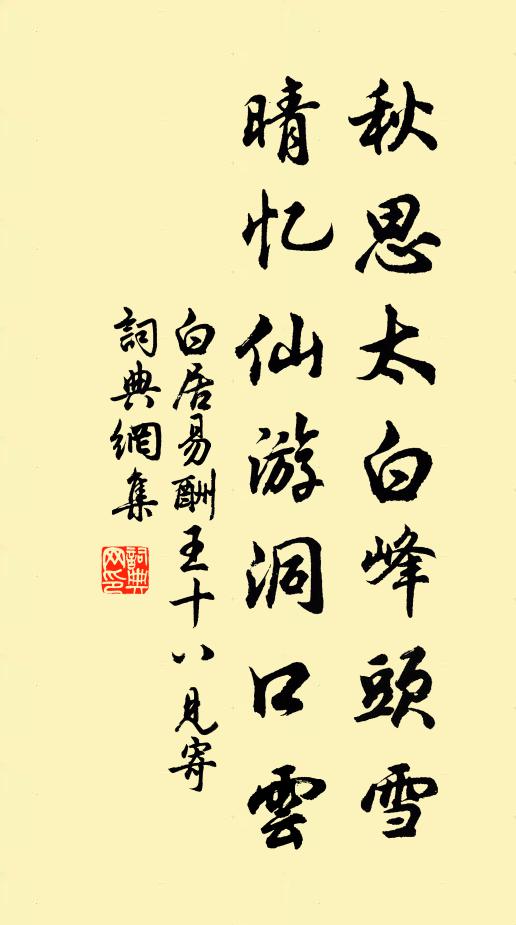 秋思太白峰頭雪
晴忆仙游洞口雲
白居易酬王十八見寄
詞典網集
詞典网印